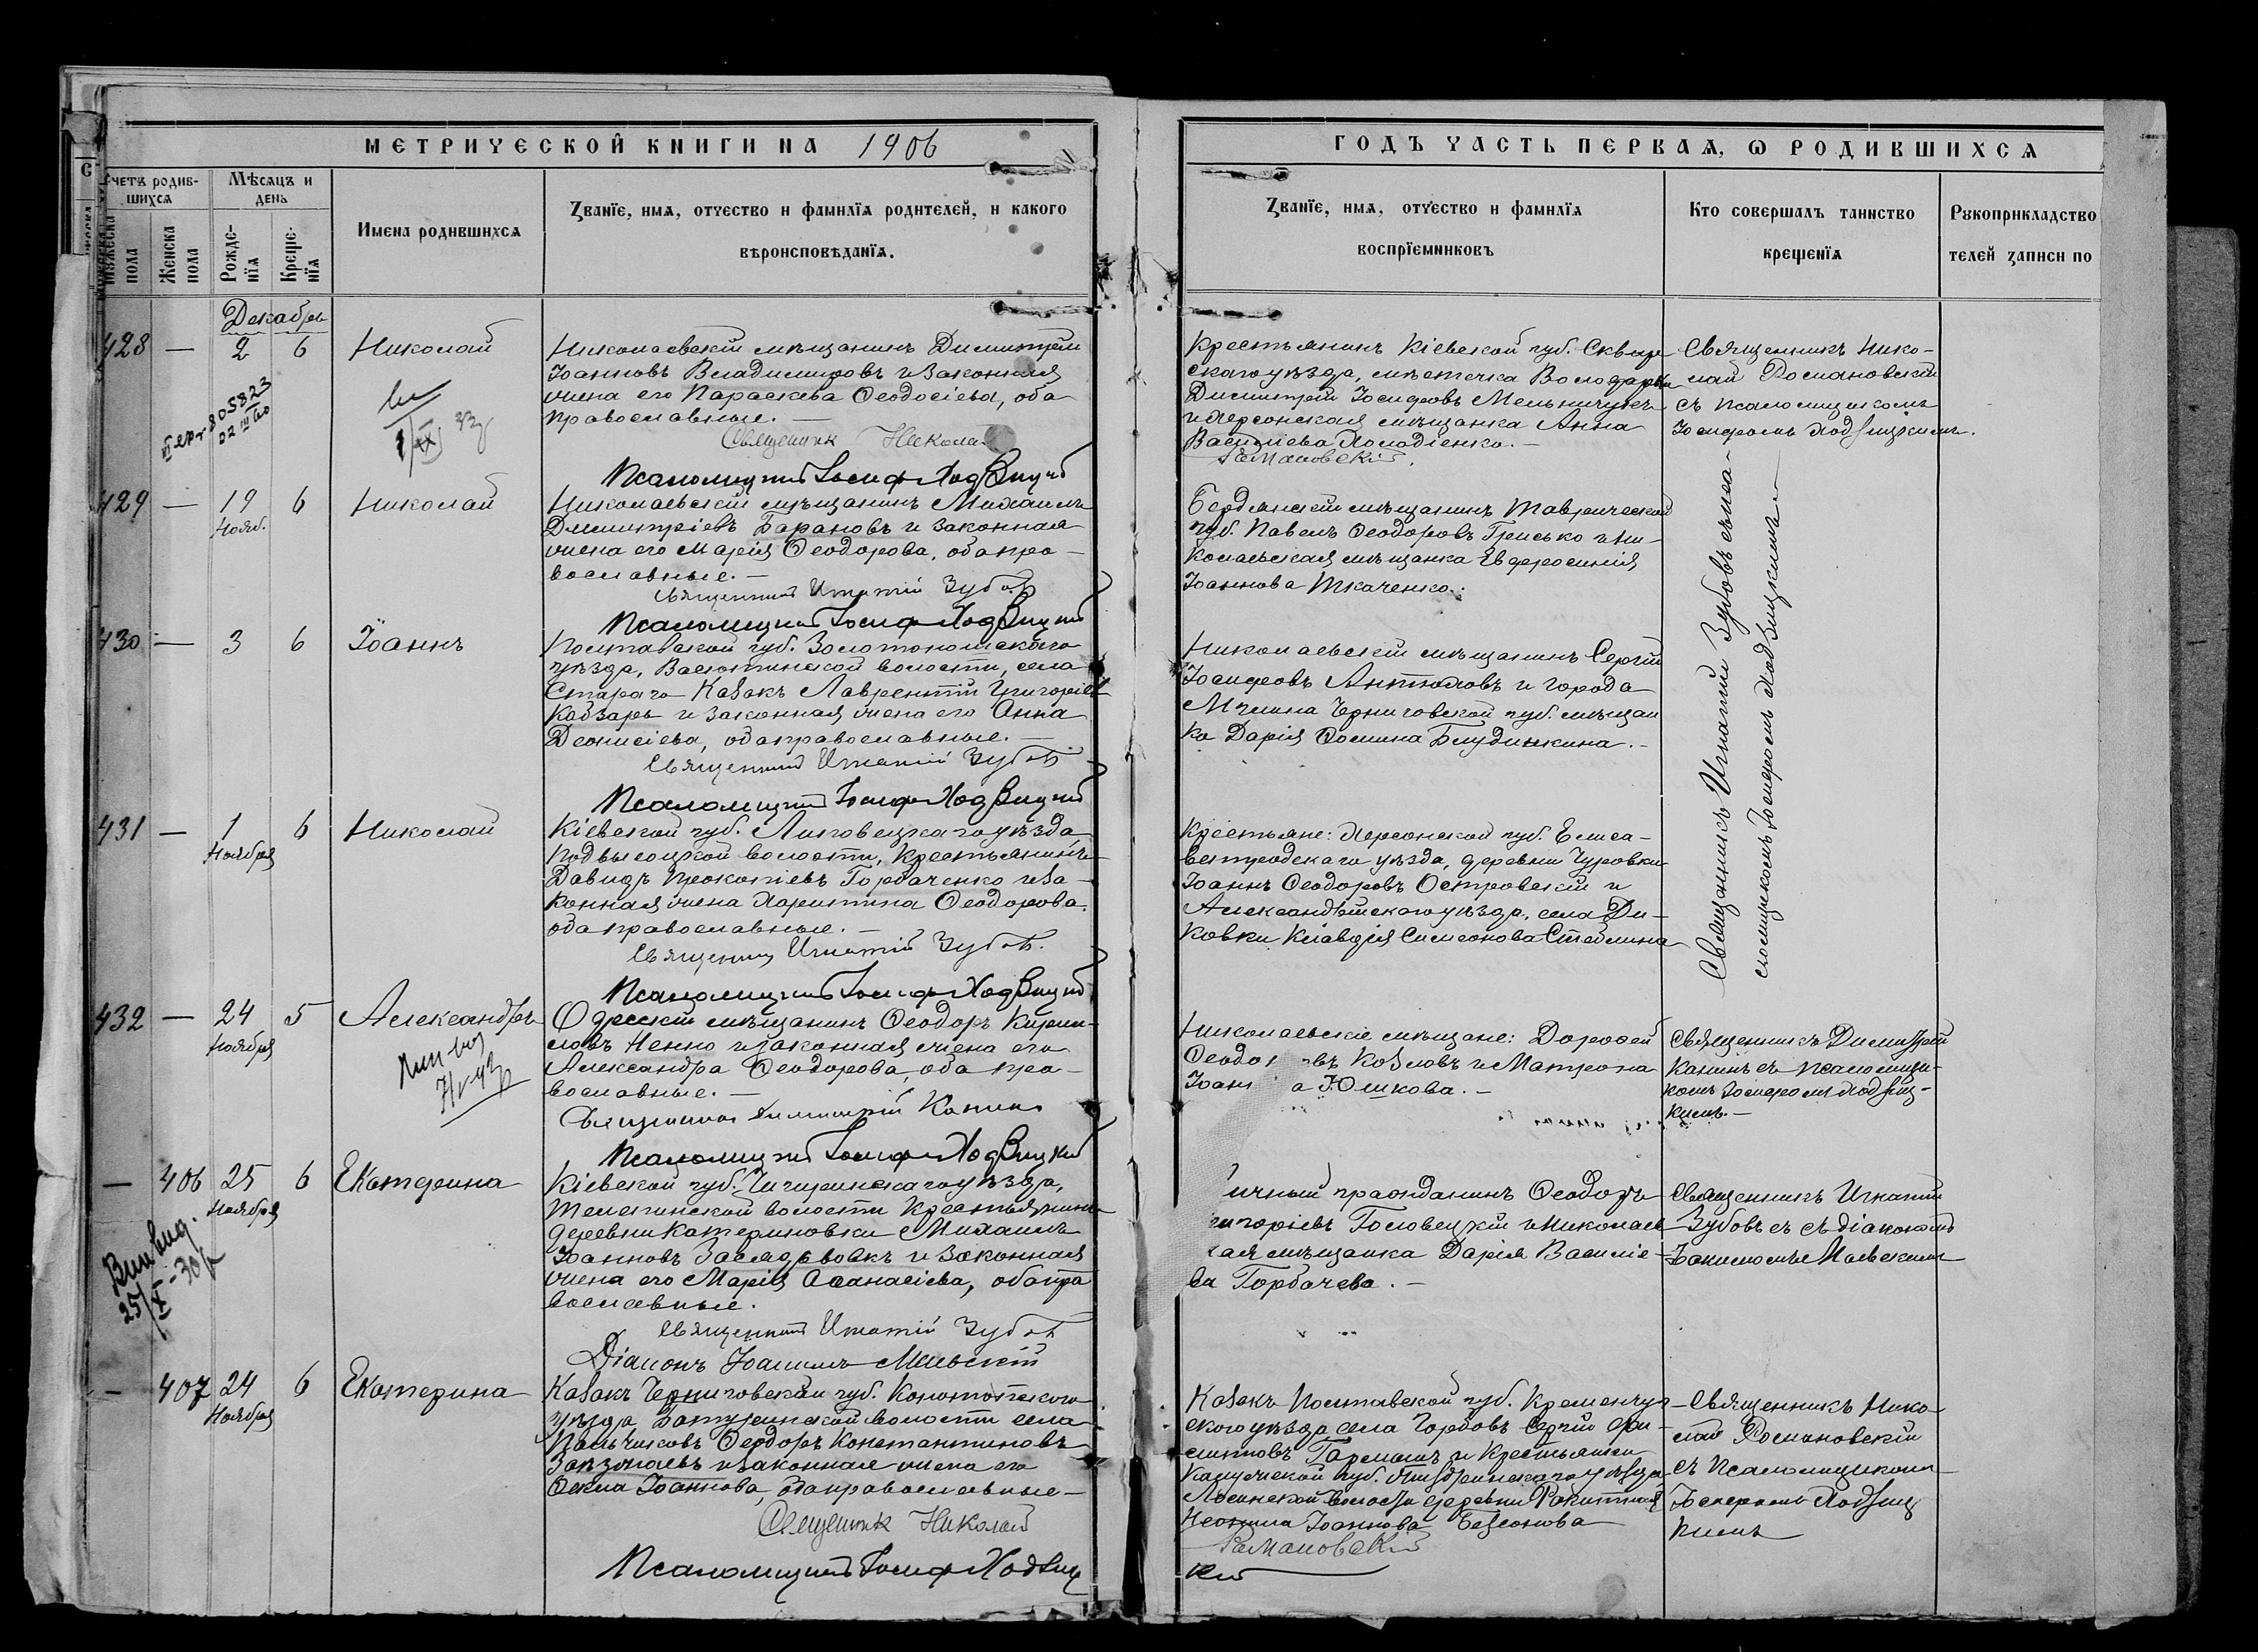 МЕТРИЧЕСКОЙ КНИГИ НА 1906
ГОДЪ ЧАСТЬ ПЕРВАЯ, Ѡ РОДИВШИХСЯ
Счетъ родив-
шихся
Мѣсяцъ и
день
Мужеска
пола
Женска
пола
Рожде-
нія
Креще-
нія
Имена родившихся
Званіе, имя, отчество и фамилія родителей, и какого
вѣроисповѣданія.
Званіе, имя, отчество и фамилія
воспріемниковъ
Кто совершалъ таинство
крещенія
Рукоприкладство
телей записи по
Декабрь
428 — 2 6 Николай
Николаевскій мѣщанинъ Димитрій
Іоанновъ Владимировъ и законная
жена его Параскева Ѳеодосіева, оба
православные. —
Священник Никола
Романовскій.
Псаломщикъ Іосиф Ходзицкій
Крестьянинъ Кіевской губ. Сквир
скаго уѣзда, мѣстечка Володарки
Димитрій Іосифовъ Мельничукъ
и Херсонская мѣщанка Анна
Василіева Холодіенко. —
Священникъ Нико-
лай Романовскій
съ псаломщикомъ
Іосифомъ Ходзицкимъ.
429 — 19 6 Николай
Нояб.
Николаевскій мѣщанинъ Михаилъ
Димитріевъ Барановъ и законная
жена его Марія Ѳеодорова, оба пра-
вославные. —
Священник Игнатій Зубовъ
Псаломщикъ Іосиф Ходзицкій
Бердянскій мѣщанинъ Таврической
губ. Павелъ Ѳеодоровъ Грисько и Ни-
колаевская мѣщанка Евфросинія
Іоаннова Ткаченко.
Священникъ Игнатій Зубовъ съ пса-
ломщикомъ Іосифомъ Ходзицкимъ —
430 — 3 6 Іоаннъ
Полтавской губ. Золотоношскаго
уѣзда, Васютинской волости, села
Стараго Казакъ Лаврентій Григоріев
Кобзарь и законная жена его Анна
Діонисіева, оба православные. —
Священник Игнатій Зубовъ
Псаломщикъ Іосиф Ходзицкій
Николаевскій мѣщанинъ Сергій
Іосифовъ Антоновъ и города
Мглина Черниговской губ. мѣщан
ка Дарія Ѳомина Блудшкина. —
431 — 1 6 Николай
Ноября
Кіевской губ. Липовецкаго уѣзда
Подвысоцкой волости, крестьянинъ
Давидъ Прокопіевъ Горбаченко и за-
конная жена Харитина Ѳеодорова,
оба православные. —
Священник Игнатій Зубовъ.
Псаломщикъ Іосиф Ходзицкій
Крестьяне: Херсонской губ. Елиса-
ветградскаго уѣзда, деревни Гуровки
Іоаннъ Ѳеодоровъ Островскій и
Александрійскаго уѣзда, села Ди-
ковки Клавдія Симеонова
432 — 24 5 Александръ
Ноября
Одесскій мѣщанинъ Ѳеодоръ Кирил-
ловъ Ненно и законная жена его
Александра Ѳеодорова, оба пра-
вославные. —
Священник Димитрій Канинъ
Псаломщикъ Іосиф Ходзицкій
Николаевскіе мѣщане: Дороѳей
Ѳеодо въ Козловъ и Матрона
Іоанн а Юшкова. —
Священникъ Димитрій
Канинъ съ псаломщи-
комъ Іосифомъ Ходзиц-
кимъ. —
— 406 25 6 Екатерина
Ноября
25/X-30
Кіевской губ. Чигиринскаго уѣзда,
Телепинской волости крестьянинъ
деревни Катериновки Михаилъ
Іоанновъ и законная
жена его Марія Аѳанасіева, оба пра
вославные.
Священник Игнатій Зубовъ
Діаконъ Іоакимъ Маевскій
ичный гражданинъ Ѳеодоръ
игоріевъ Головецкій и Николаев
кая мѣщанка Дарія Василіе-
ва Горбачева. —
Священникъ Игнатій
Зубовъ съ діакономъ
Іоакимомъ Маевскимъ
— 407 24 6 Екатерина
Ноября
Казакъ Черниговской губ. Конотопскаго
уѣзда Батуринской волости села
Пальчиковъ Ѳеодоръ Константиновъ
и законная жена его
Ѳекла Іоаннова, оба православные —
Священник Николай
Романовскій
Псаломщикъ Іосиф Ходзиц
кій
Казакъ Полтавской губ. Кременчуг
скаго уѣзда села Горбовъ Сергій Фи-
липповъ Гармашъ и крестьянка
Калужской губ. Жиздринскаго уѣзда
волости деревни Ракитной
Неонила Іоаннова Безсонова
Священникъ Нико
лай Романовскій
съ псаломщикомъ
Іосифомъ Ходзиц
кимъ